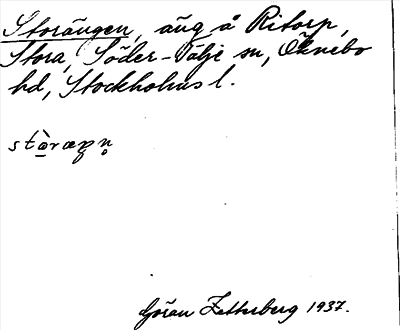 Storängen, äng å Ritorp,
Stora, Söder-Tälje sn, Öknebo
hd, Stockholms l.
Göran Zetterberg 1937.